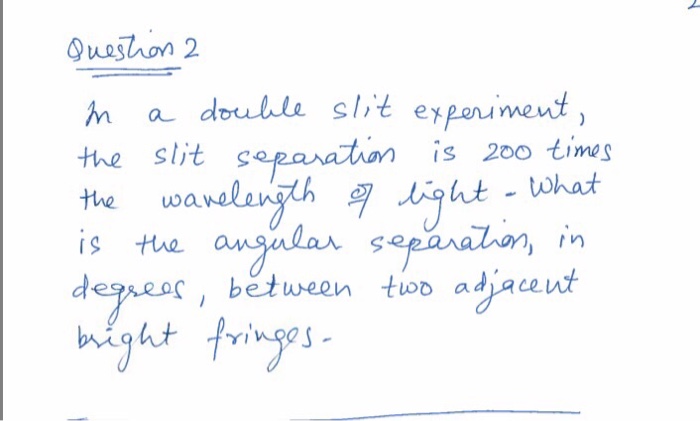 Question 2
In a double slit experiment,
the slit separation is 200 times
the wavelength of light - What
is the angular separation, in
degrees, between two adjacent
bright fringes.